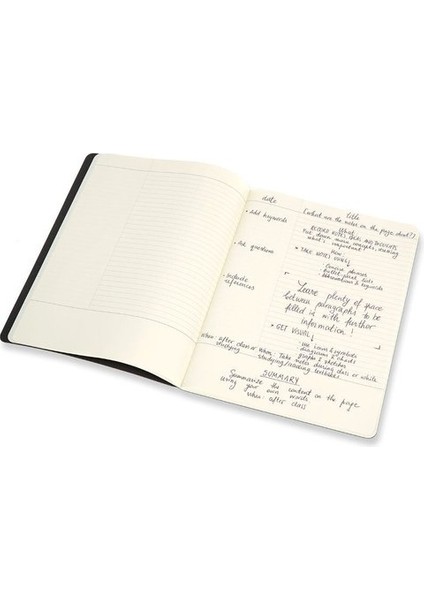 date
title
(what are the notes on the page about?)
• Add keywords
What
RECORD NOTES, IDEAS AND THOUGHTS
Put down main concepts, making
what's important
How:
• Ask questions
• TAKE NOTES USING
Concise phrases
Bullet-point lists
Abbreviations & keywords
• Include
references
Leave plenty of space
between paragraphs to be
filled in with further
information!
• GET VISUAL
Use icons & symbols
diagrams & charts
graphs & sketches
when: after class or when
studying
When: Take notes during class or while
studying/reading textbooks
SUMMARY
Summarize the content on the page
using your own words
when: after class